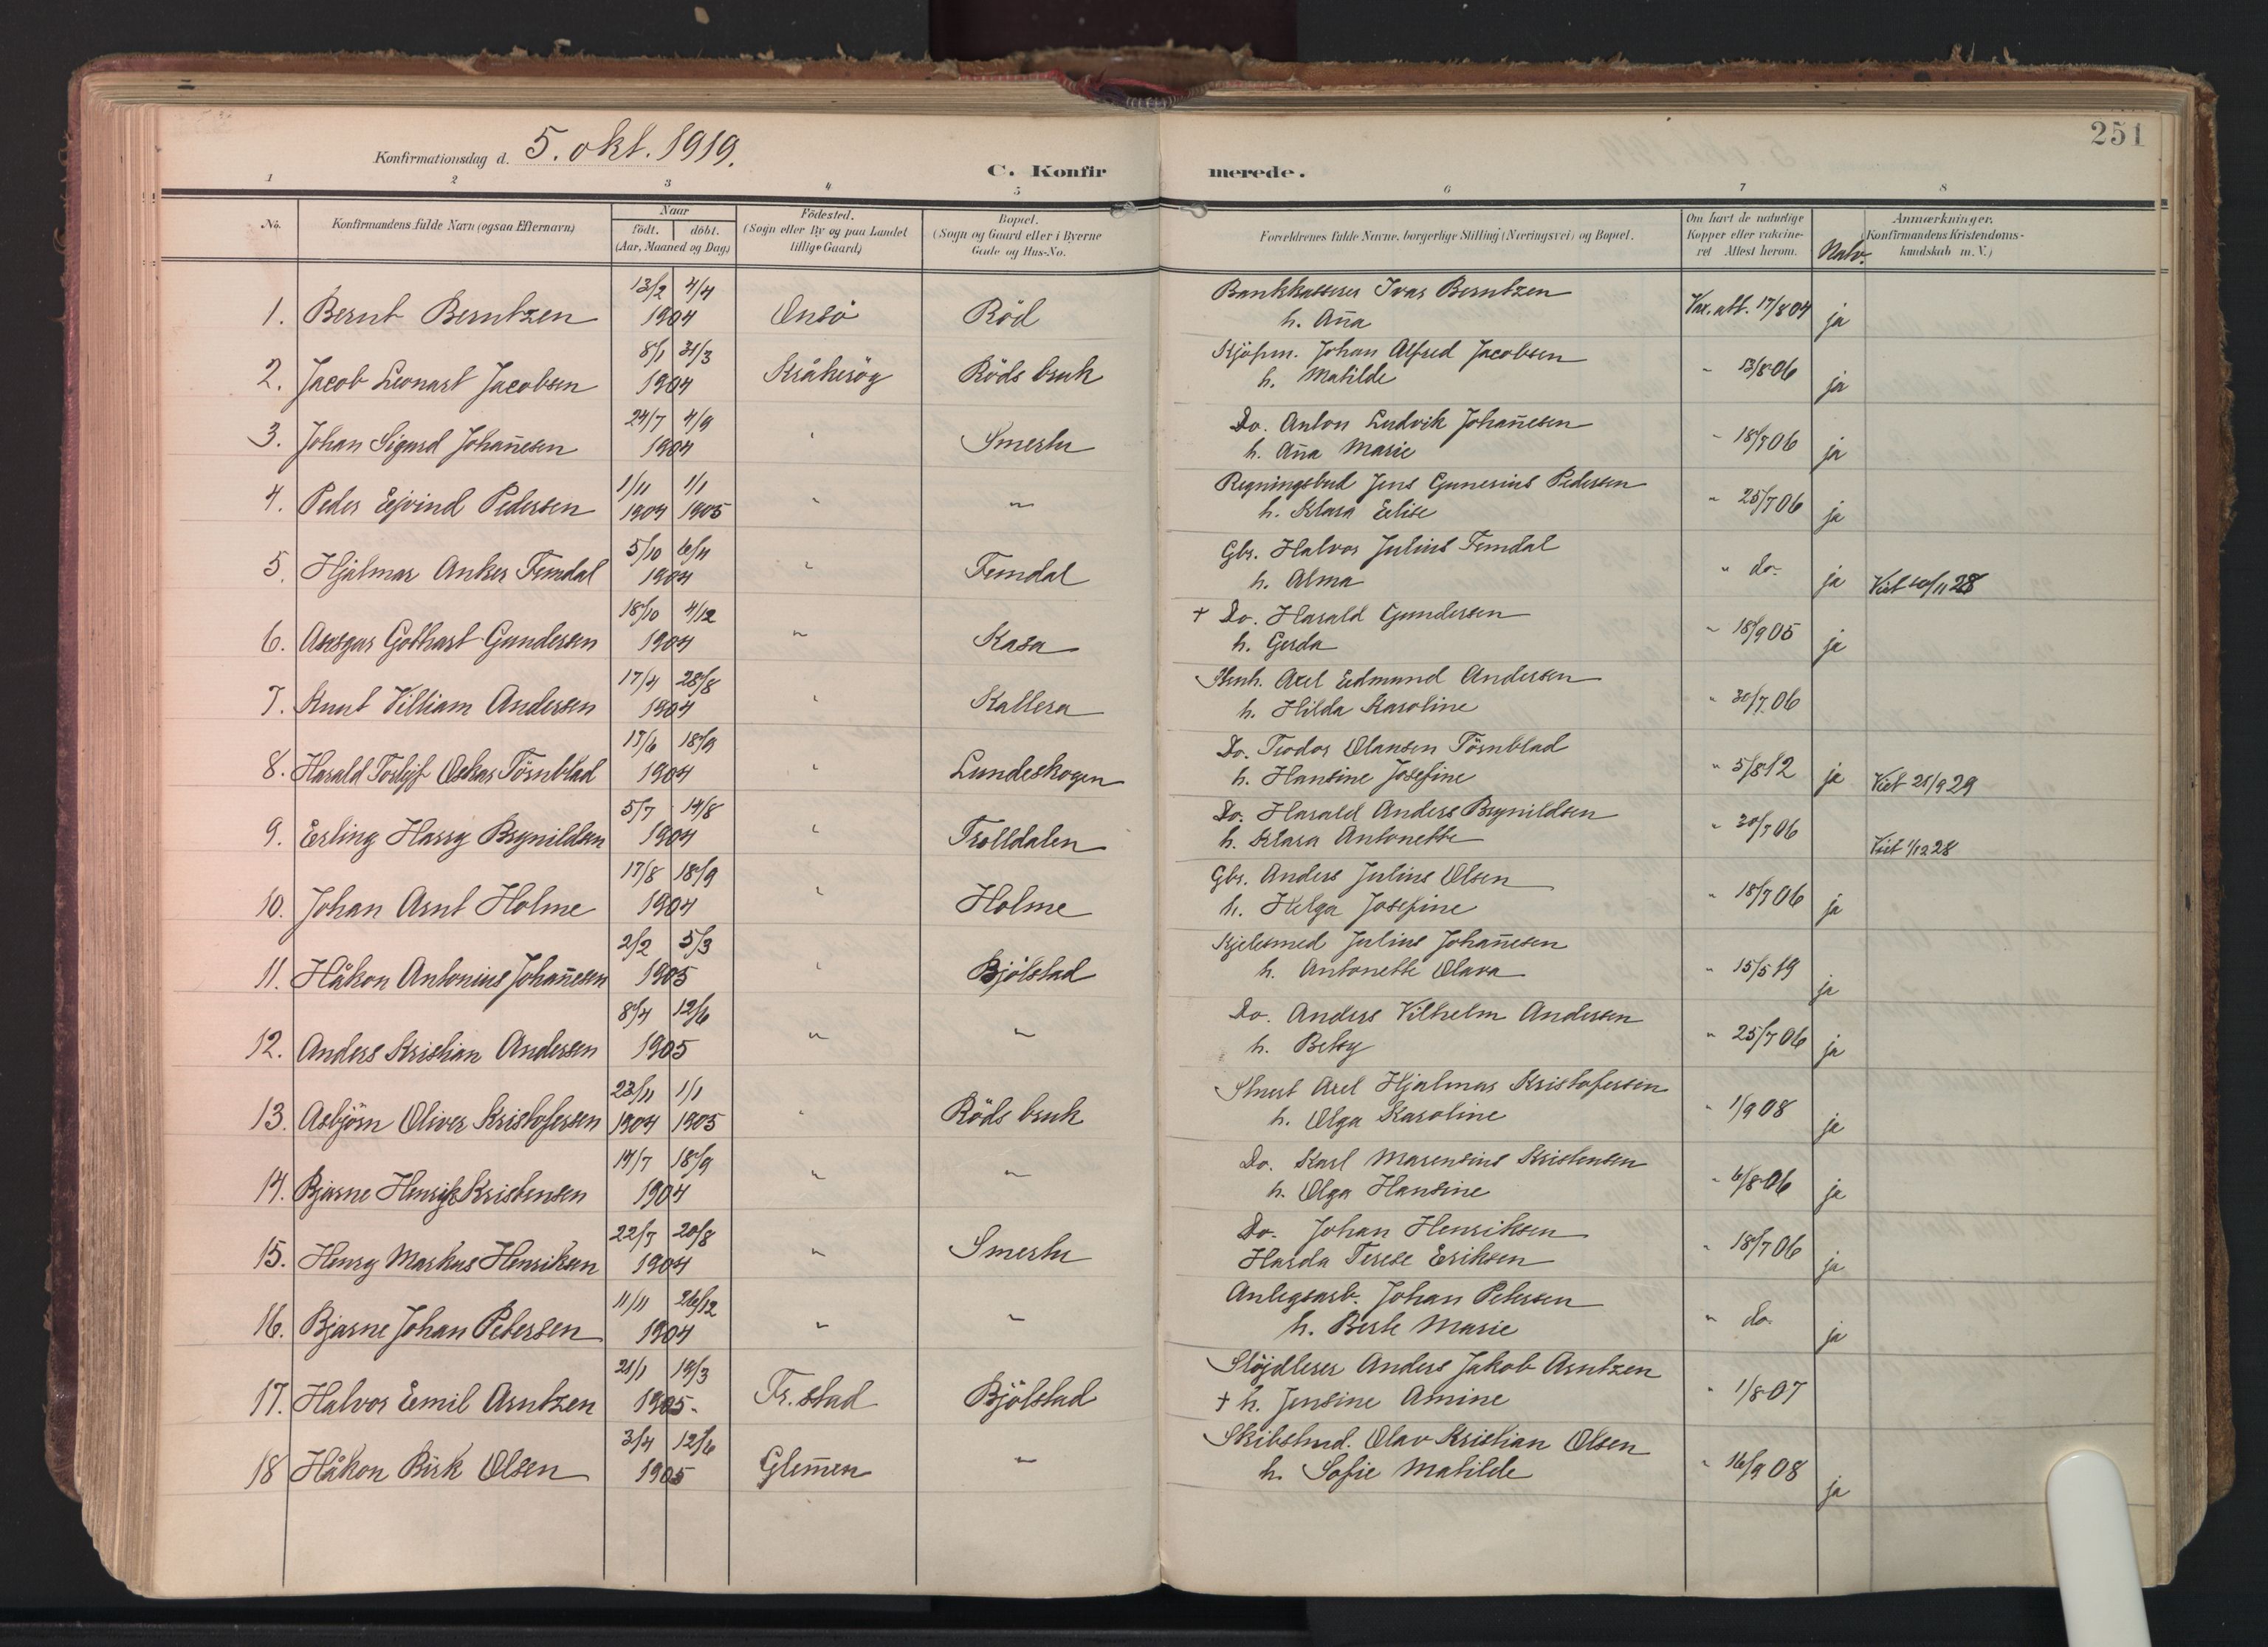 251
Konfirmationsdag d. 5. okt. 1919.
C. Konfirmerede.
1 2 3 4 5 6 7 8
No. Konfirmandens fulde Navn (ogsaa Efternavn) Naar født. døbt. (Aar, Maaned og Dag) Fødested. (Sogn eller By og paa Landet tillige Gaard) Bopæl. (Sogn og Gaard eller i Byerne Gade og Hus-No. Forældrenes fulde Navne, borgerlige Stilling (Næringsvei) og Bopæl. Om havt de naturlige Kopper eller vakcineret Attest herom. Natv. Anmærkninger. (Konfirmandens Kristendomskundskab m. V.)
1. Bernt Berntzen 13/2 4/4 1904 Onsö Röd Bankkasserer Ivar Berntzen h. Aña Vax. att. 17/8 04 ja
2. Jacob Leonart Jacobsen 8/1 31/3 1904 Kråkeröy Röds bruk Kjöpm. Johan Alfred Jacobsen h. Matilde " 13/8 06 ja
3. Johan Sigurd Johañesen 24/7 4/9 1904 " Smertu Do. Anton Ludvik Johañesen h. Aña Marie " 18/7 06 ja
4. Peder Ejvind Pedersen 1/11 1904 1/1 1905 " " Regningsbud Jens Gunerius Pedersen h. Klara Elise " 25/7 06 ja
5. Hjalmar Anker Femdal 5/10 6/11 1904 " Femdal Gbr. Halvor Julius Femdal h. Alma " do. ja Viet 10/11 28
6. Ansgar Gothart Gundersen 18/10 4/12 1904 " Kasa + Do. Harald Gundersen h. Gerda " 18/9 05 ja
7. Knut Villiam Andersen 17/4 28/8 1904 " Kallera Stenh. Axel Edmund Andersen h. Hilda Karoline " 30/7 06
8. Harald Torlejf Oskar Törnblad 17/6 18/9 1904 " Lundeskogen Do. Teodor Olausen Törnblad h. Hansine Josefine " 5/8 12 ja Viet 21/9 29
9. Erling Harry Brynildsen 5/7 14/8 1904 " Trolldalen Do. Harald Anders Brynildsen h. Klara Antonette " 30/7 06 Viet 1/12 28
10. Johan Arnt Holme 17/8 18/9 1904 " Holme Gbr. Anders Julius Olsen h. Helga Josefine " 18/7 06 ja
11. Håkon Antonius Johañesen 2/2 5/3 1905 " Bjölstad Kjelesmed Julius Johañesen h. Antonette Olava " 15/5 19 ja
12. Anders Kristian Andersen 8/4 12/6 1905 " " Do. Anders Vilhelm Andersen h. Betsy " 25/7 06 ja
13. Asbjörn Oliver Kristofersen 23/11 1904 1/1 1905 " Röds bruk Stuert Axel Hjalmar Kristofersen h. Olga Karoline " 1/9 08 ja
14. Bjarne Henrik Kristensen 14/7 18/9 1904 " " Do. Karl Marensius Kristensen h. Olga Hansine " 6/8 06 ja
15. Henry Markus Henriksen 22/7 20/8 1904 " Smertu Do. Johan Henriksen Harda Terese Eriksen " 18/7 06 ja
16. Bjarne Johan Petersen 11/11 26/12 1904 " " Anlegsarb. Johan Petersen h. Berte Marie " do. ja
17. Halvor Emil Arntzen 21/1 19/3 1905. Fr.stad Bjölstad Slöjdlerer Anders Jakob Arntzen + h. Jensine Amine " 1/8 07
18 Håkon Birk Olsen 3/4 12/6 1905 Glem̃en " Skibstmd. Olav Kristian Olsen h. Sofie Matilde " 16/9 08 ja